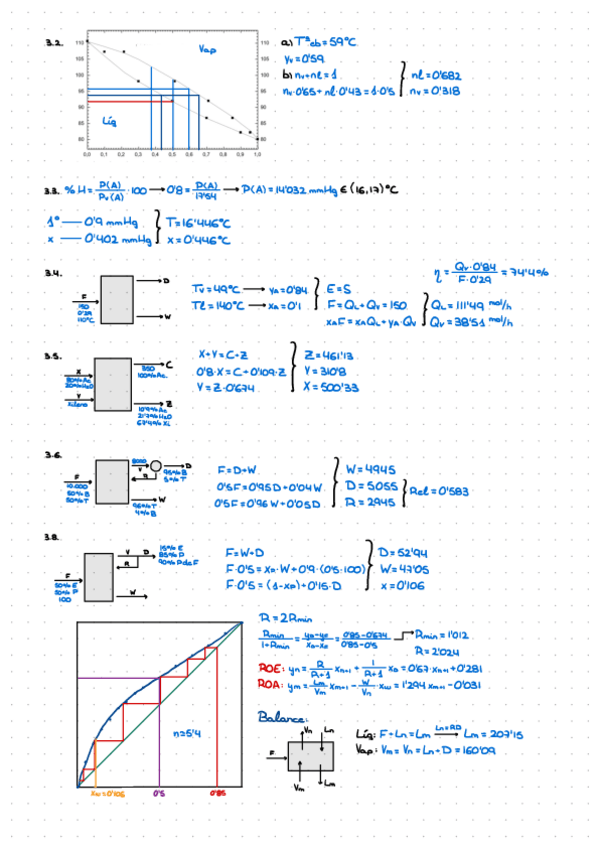 3.2.
Vap
Líq
110
105
100
95
90
85
80
0,0 0,1 0,2 0,3 0,4 0,5 0,6 0,7 0,8 0,9 1,0
a) Tªeb = 59ºC
yv = 0'59
b) nv + nl = 1
nv · 0'65 + nl · 0'43 = 1 · 0'5
nl = 0'682
nv = 0'318
3.3. %H = P(A)/Pv(A) · 100 → 0'8 = P(A)/17'54 → P(A) = 14'032 mmHg ∈ (16,17) ºC
1º — 0'9 mmHg
x — 0'402 mmHg
T = 16'446ºC
x = 0'446ºC
3.4.
F
150
0'29
110ºC
D
W
Tv = 49ºC → yA = 0'84
Tl = 140ºC → xA = 0'1
E = S
F = QL + Qv = 150
xAF = xAQL + yA · Qv
QL = 111'49 mol/h
Qv = 38'51 mol/h
η = Qv · 0'84 / F · 0'29 = 74'4%
3.5.
X
80% Ac.
20% H2O
Y
Xileno
C
350
100% Ac.
Z
10'9% Ac
21'7% H2O
67'4% Xi
X + Y = C + Z
0'8 · X = C + 0'109 · Z
Y = Z · 0'674
Z = 461'13
Y = 310'8
X = 500'33
3.6.
F
10.000
50% B
50% T
8000
V
R
D
95% B
5% T
W
96% T
4% B
F = D + W
0'5F = 0'95D + 0'04W
0'5F = 0'96W + 0'05D
W = 4945
D = 5055
R = 2945
Rel = 0'583
3.8.
F
50% E
50% P
100
V D
R
15% E
85% P
90% P de F
W
F = W + D
F · 0'5 = xA · W + 0'9 · (0'5 · 100)
F · 0'5 = (1 - xA) + 0'15 · D
D = 52'94
W = 47'05
x = 0'106
n = 5'4
xw = 0'106
0'5
0'85
R = 2Rmin
Rmin/1+Rmin = = 0'85 - 0'674 / 0'85 - 0'5
Rmin = 1'012
R = 2'024
ROE: yn = R/R+1 xn+1 + 1/R+1 xD = 0'67 · xn+1 + 0'281
ROA: ym = Lm/Vm xm+1 - W/Vn xw = 1'294 xm+1 - 0'031
Balance:
F
Vn Ln
Vm Lm
Líq: F + Ln = Lm Ln=RD → Lm = 207'15
Vap: Vm = Vn = Ln + D = 160'09